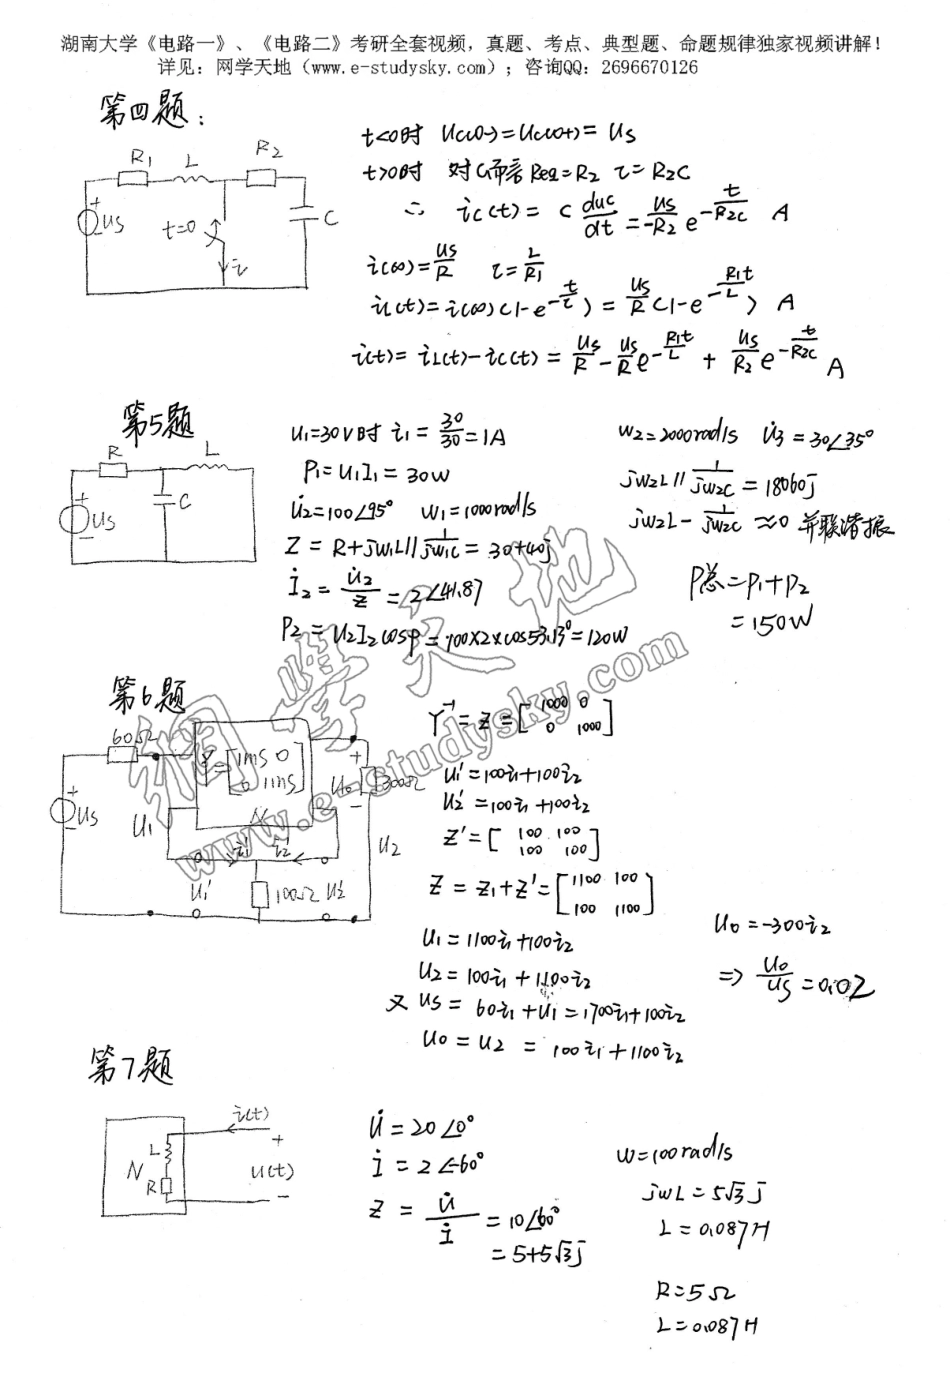 湖南大学《电路一》、《电路二》考研全套视频，真题、考点、典型题、命题规律独家视频讲解！
详见：网学天地（www.e-studysky.com）；咨询QQ：2696670126
第四题：
R1 L R2
us t=0 i C
t<0时 uc(0-)=uc(0+)= us
t>0时 对C而言 Req=R2 τ= R2C
∴ ic(t)= C duc/dt = us/-R2 e^(-t/R2C) A
i(∞)= us/R τ= L/R1
iL(t)=i(∞)(1-e^(-t/τ)) = us/R (1-e^(-R1t/L)) A
i(t)= iL(t)-ic(t) = us/R - us/R e^(-R1t/L) + us/R2 e^(-t/R2C) A
第5题
R L
us C
u1=30V时 i1= 30/30 =1A
P1=U1I1= 30W
u̇2=100∠95° w1=1000rad/s
Z = R+jw1L//1/jw1C = 30+40j
İ2= u̇2/Z =2∠41.87
P2=U2I2cosφ=100×2×cos53.13°=120W
w2=2000rad/s u̇3=30∠35°
jw2L//1/jw2C = 18060j
jw2L-1/jw2C ≈0 并联谐振
P总=P1+P2
=150W
第6题
60Ω
us u1 Y=[1ms 0; 0 1ms] N u0 300Ω u2
i1' i2'
u1' 100Ω u2'
Y^-1=Z=[1000 0; 0 1000]
u1'=100i1+100i2
u2'=100i1+100i2
Z'=[100 100; 100 100]
Z = Z1+Z'=[1100 100; 100 1100]
u1=1100i1+100i2
u2=100i1+1100i2
又 us= 60i1+u1=1700i1+100i2
u0=u2 = 100i1+1100i2
u0=-300i2
⇒ u0/us=0.02
第7题
N L R i(t) + u(t) -
u̇=20∠0°
i̇=2∠-60°
Z = u̇/i̇ =10∠60°
=5+5√3j
w=100rad/s
jwL=5√3j
L=0.087H
R=5Ω
L=0.087H
網學天地
www.e-studysky.com